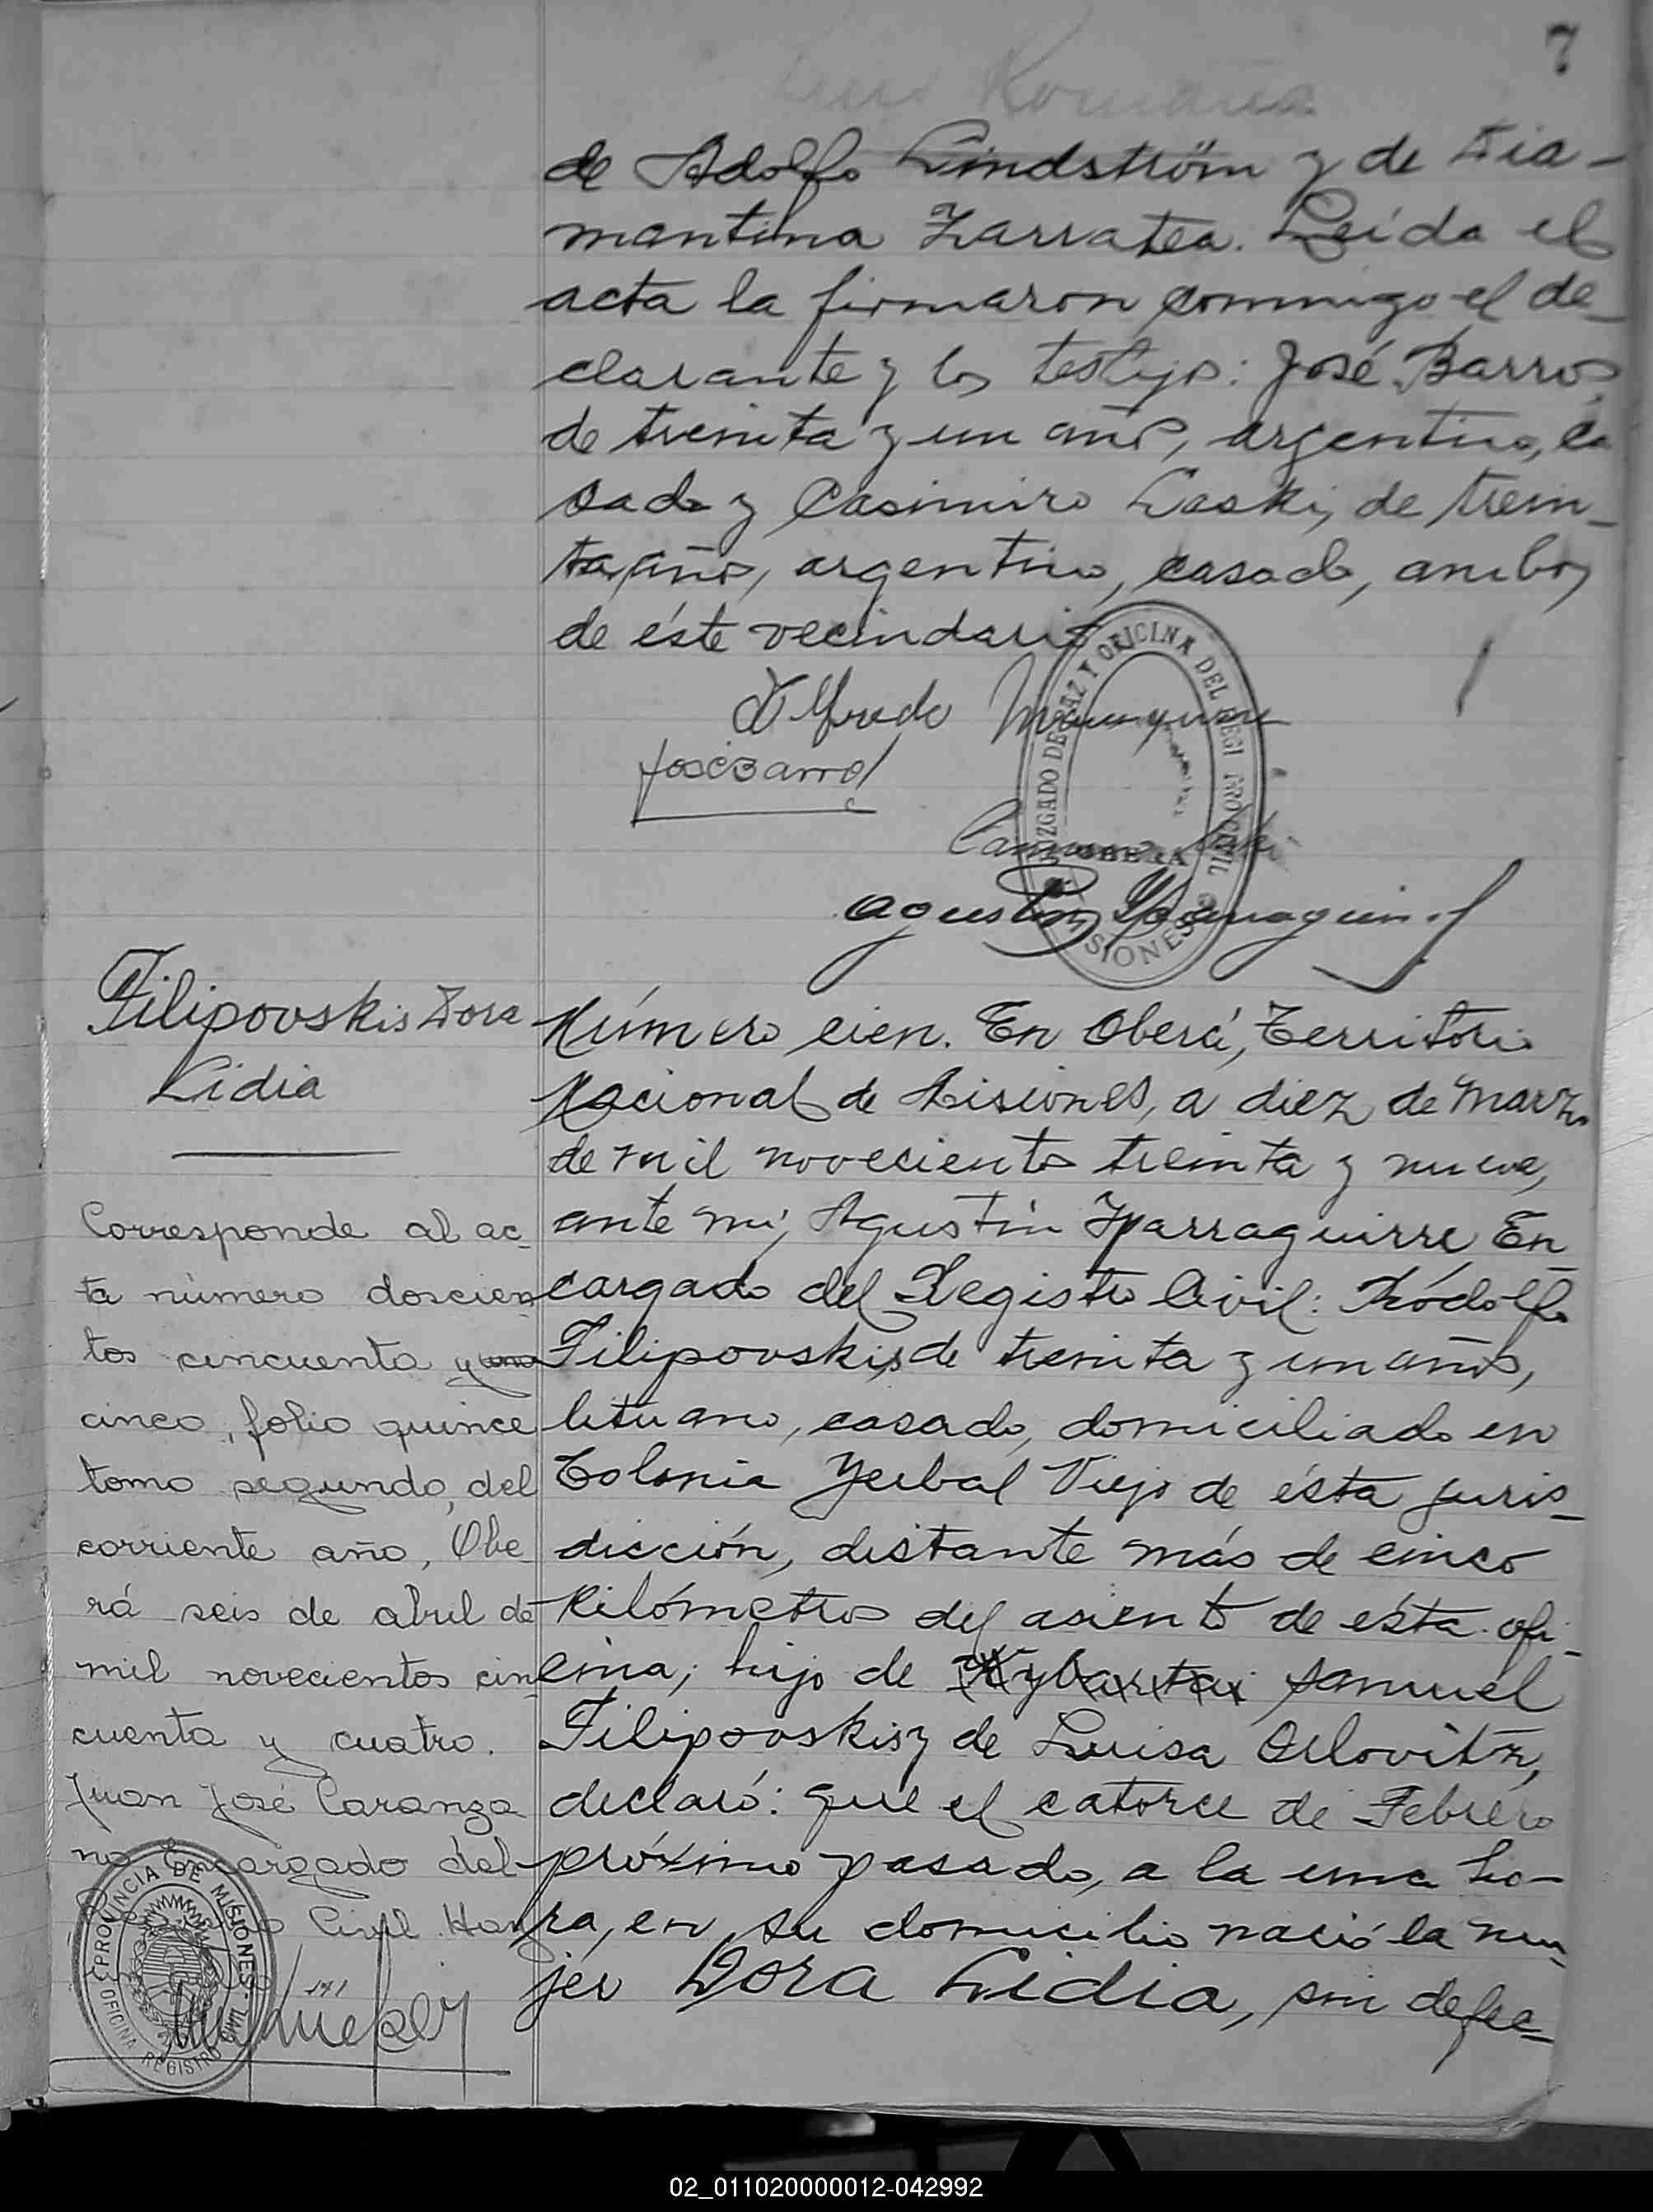 7
de Adolfo Lindström y de Dia-
mantina Zarratea. Leída el
acta la firmaron conmigo el de-
clarante y los testigos: José Barros,
de treinta y un años, argentino, ca
sado y Casimiro Laski, de trein-
ta años, argentino, casado, ambos
de éste vecindario
Alfredo
José Barros
JUZGADO DE PAZ Y OFICINA DEL REGISTRO CIVIL
OBERA
MISIONES
Agustin Yparraguirre
Filipovskis Dora
Lidia
Corresponde al ac-
ta número doscien
tos cincuenta y uno
cinco, folio quince
tomo segundo, del
corriente año, Obe
rá seis de abril de
mil novecientos cin-
cuenta y cuatro.
Juan José Caranza
no Encargado del
Civil. Hay
PROVINCIA DE MISIONES
OFICINA REGISTRO CIVIL
Número cien. En Oberá, Territorio
Nacional de Misiones, a diez de Marzo
de mil novecientos treinta y nueve,
ante mí, Agustín Yparraguirre En-
cargado del Registro Civil: Ródolfo
Filipovskis, de treinta y un años,
lituano, casado, domiciliado en
Colonia Yerbal Viejo de ésta juris-
dicción, distante más de cinco
kilómetros del asiento de ésta ofi-
cina; hijo de Kybartai Samuel
Filipovskis y de Luisa Orlovitz,
declaró: que el catorce de Febrero
próximo pasado, a la una ho-
ra, en su domicilio nació la mu-
jer Dora Lidia, sin defec-
02_011020000012-042992